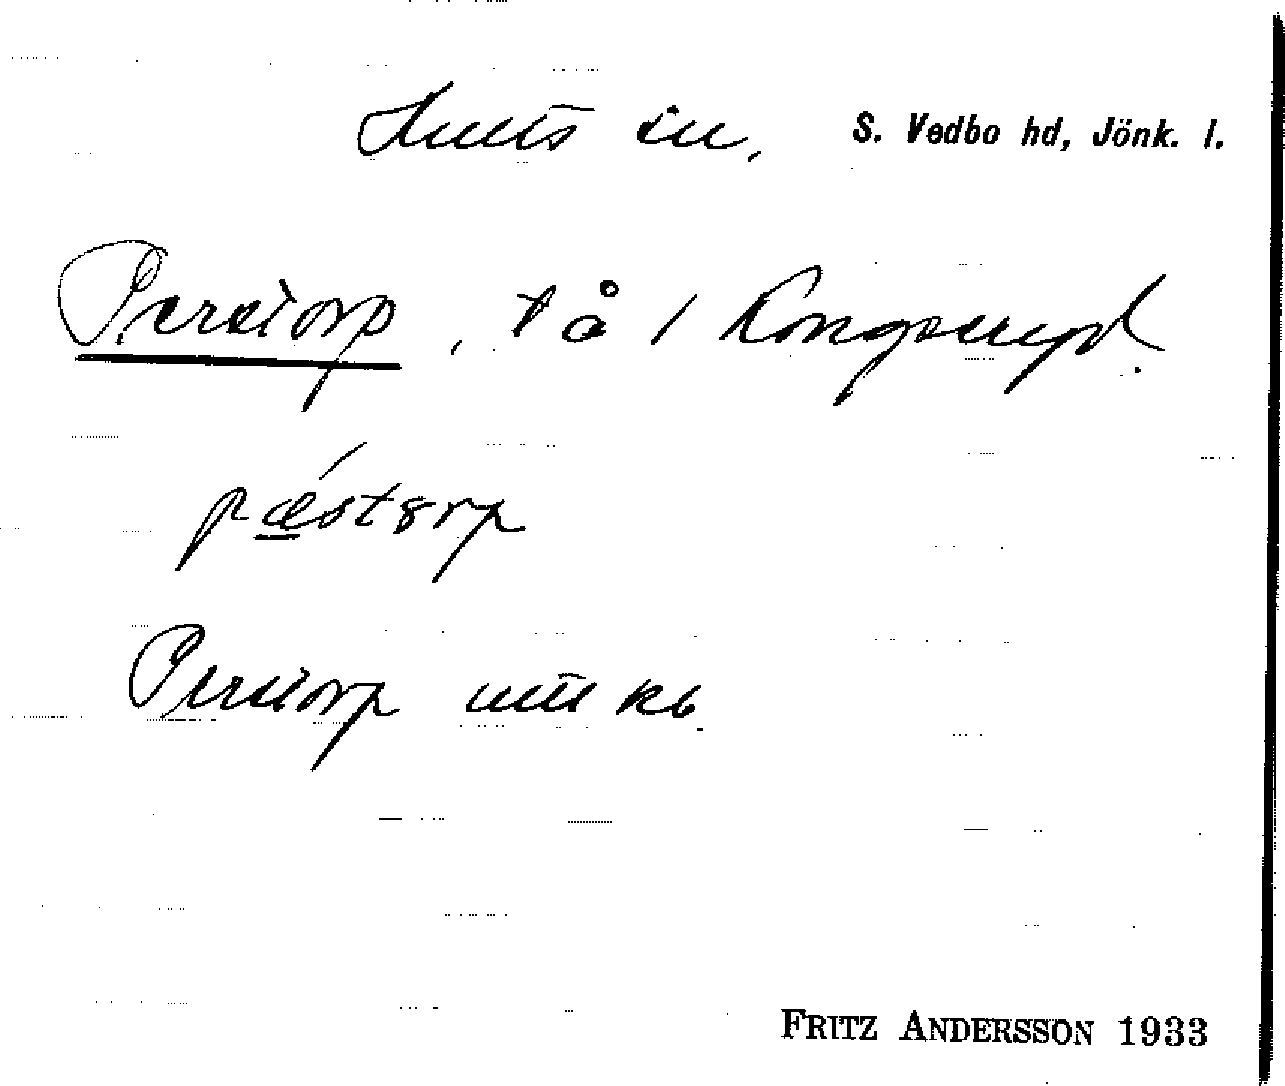 Hults sn, S. Vedbo hd, Jönk. l.
Perstorp, tå / Kongseryd.
pǽstɤrp
Perstorp utt kb.
FRITZ ANDERSSON 1933